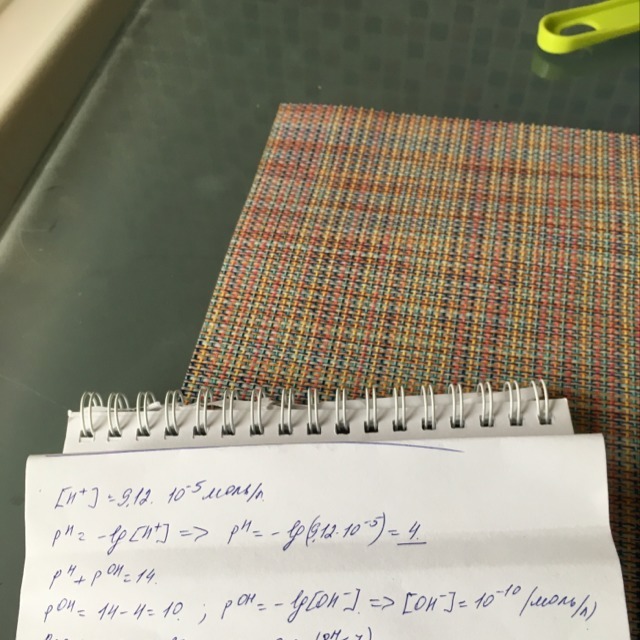 [H⁺] = 9,12 · 10⁻⁵ моль/л
pH = -lg[H⁺] => pH = -lg(9,12·10⁻⁵) = 4
pH + pOH = 14.
pOH = 14-4 = 10 ; pOH = -lg[OH⁻] => [OH⁻] = 10⁻¹⁰ (моль/л)